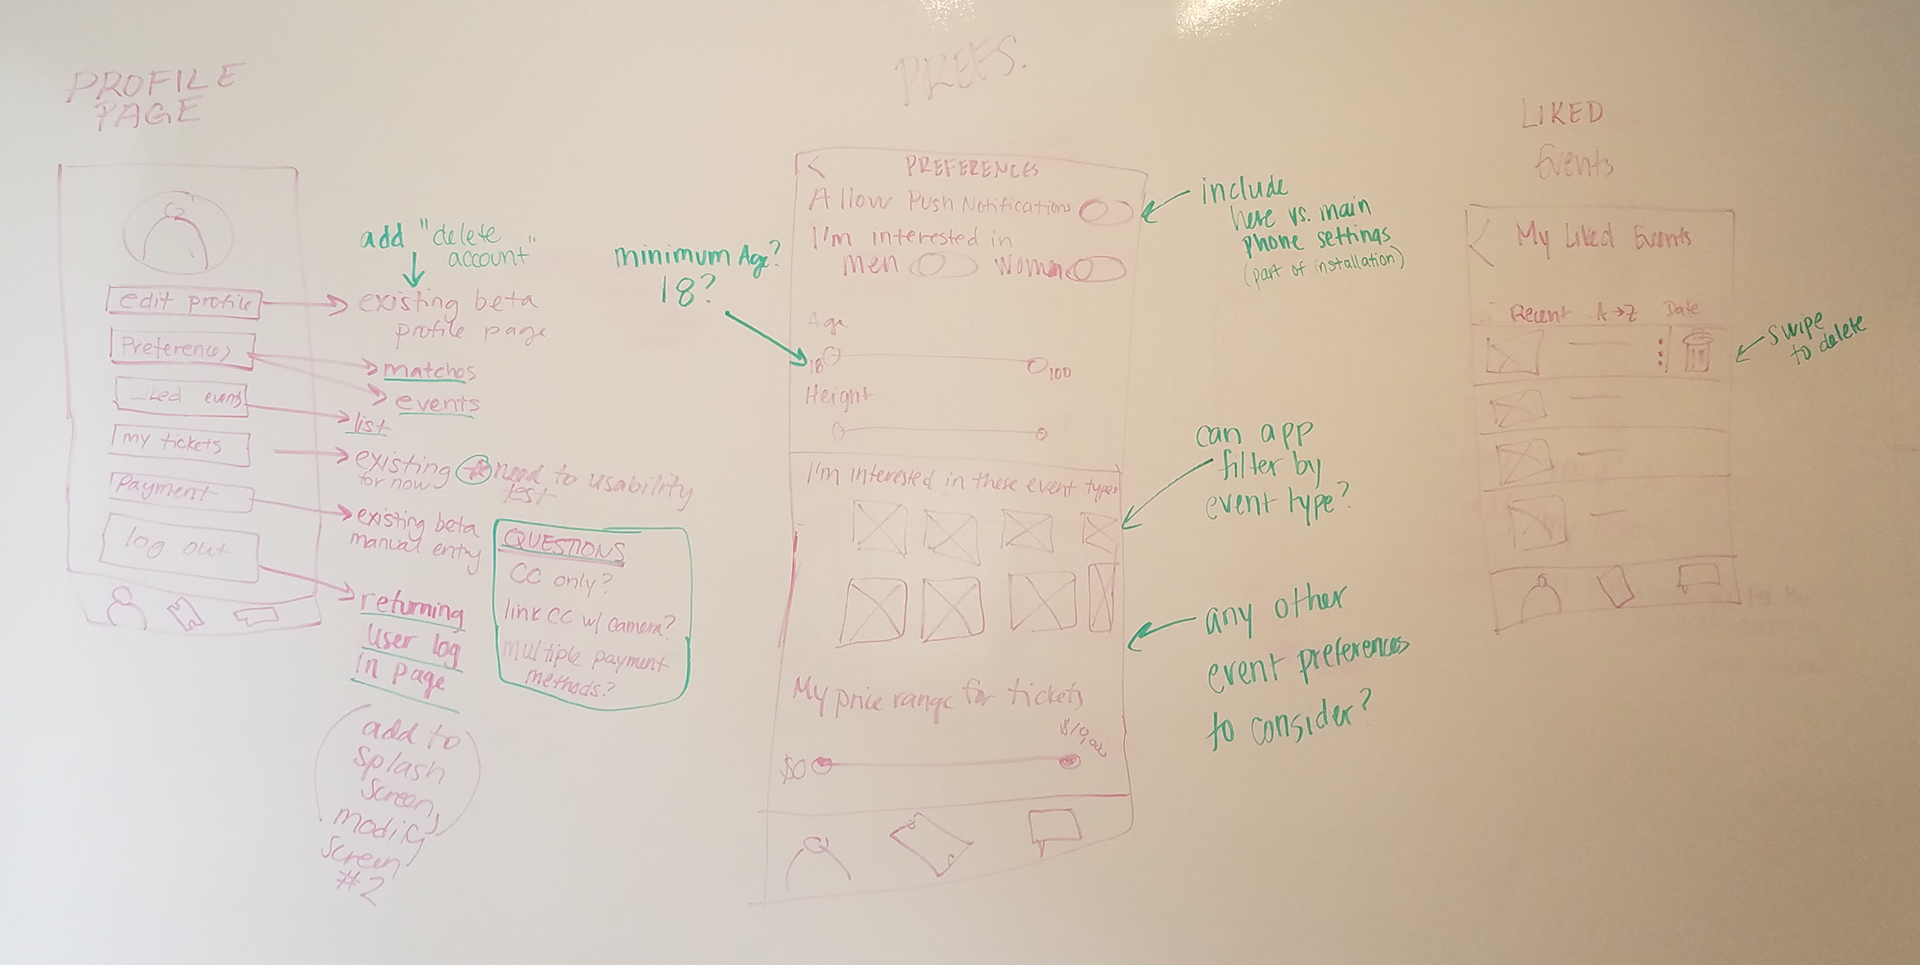 PROFILE
PAGE
edit profile
Preferences
Liked events
my tickets
payment
log out
add "delete
account"
existing beta
profile page
matches
events
list
existing
for now
need to usability
test
existing beta
manual entry
returning
user log
in page
add to
splash
screen,
modify
screen
#2
QUESTIONS
CC only?
link CC w/ camera?
multiple payment
methods?
PREFS.
minimum Age?
18?
< PREFERENCES
Allow Push Notifications
I'm interested in
men women
Age
18 100
Height
I'm interested in these event types
My price range for tickets
$0
include
here vs. main
phone settings
(part of installation)
can app
filter by
event type?
any other
event preferences
to consider?
LIKED
Events
< My Liked Events
Recent A→Z Date
swipe
to delete